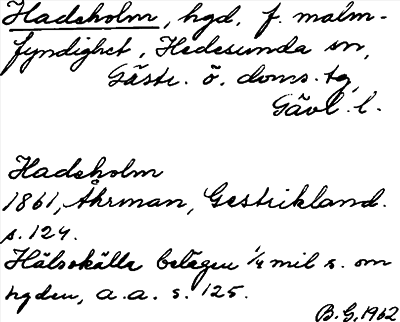 Hadeholm, hgd, f. malm-
fyndighet, Hedesunda sn,
Gästr. ö. doms. tg,
Gävl. l.
Hadeholm
1861, Åhrman, Gestrikland.
s. 124.
Hälsokälla belägen 1/4 mil s. om
hgden, a.a. s. 125.
B.G. 1962